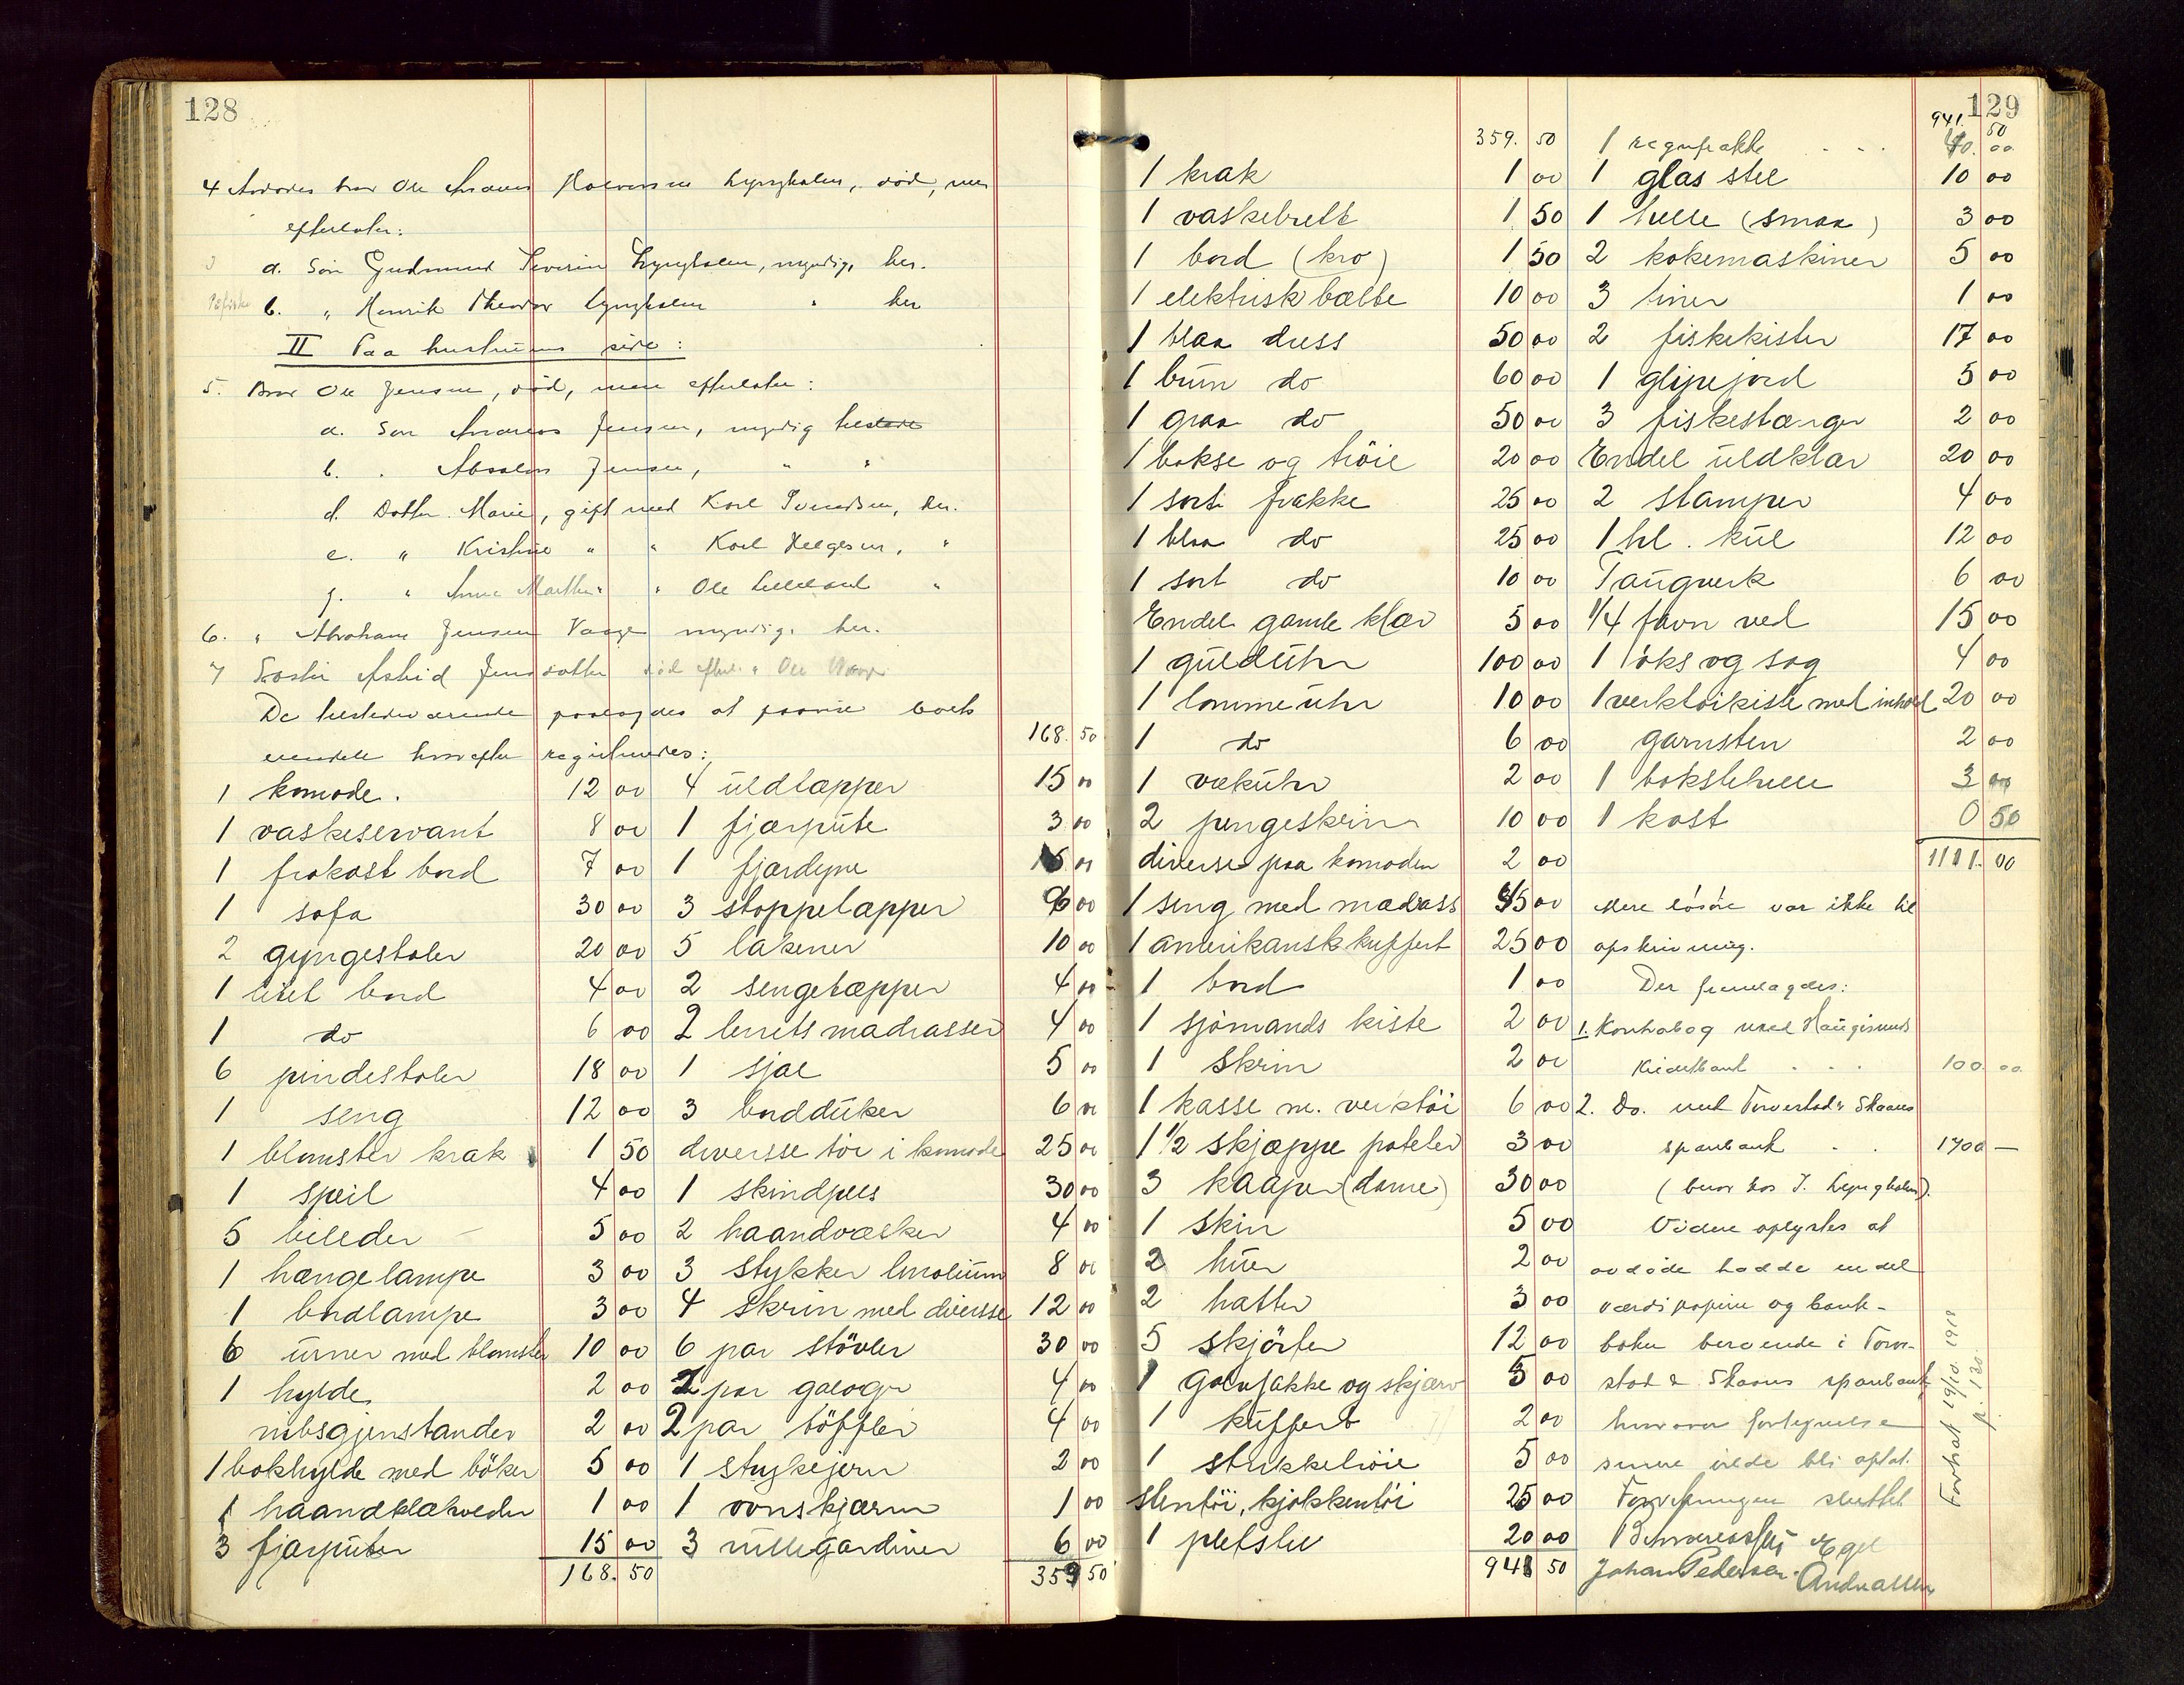 128
4 Avdødes bror Ole
Lyngholm, død, men
efterlater:
a. Søn Gudmund Severin Lyngholm, myndig, her.
b. " Henrik Theodor Lyngholm " her
II Paa hustruens side:
5. Bror Ole Jensen, død, men efterlater:
a. Søn Andreas Jensen, myndig
b. " Absalon Jensen, " "
d. Datter Marie, gift med Karl Svendsen, her.
e. " Kristine " " Karl Helgesen, "
f. " Anne Marthe " " Ole "
6. " Abraham Jensen Vaage myndig, her.
7 Søster Astrid Jensdotter død
De tilstedeværende paalagdes at paavise boets
eiendele hvorefter registreredes:
1 komode. 12 00
1 vaskeservant 8 00
1 frokost bord 7 00
1 sofa 30 00
2 gyngestoler 20 00
1 litet bord 4 00
1 do 6 00
6 pindestoler 18 00
1 seng 12 00
1 blomster krak 1 50
1 speil 4 00
5 billeder 5 00
1 hængelampe 3 00
1 bordlampe 3 00
6 urner med blomster 10 00
1 hylde 2 00
nibsgjenstander 2 00
1 bokhylde med böker 5 00
1 haandklæholder 1 00
3 fjærputer 15 00
168. 50
168. 50
4 uldtæpper 15 00
1 fjærpute 3 00
1 fjærdyne 15 00
3 stoppetæpper 6 00
5 lakener 10 00
2 sengetæpper 4 00
2 lerretsmadrasser 4 00
1 sjal 5 00
3 bordduker 6 00
diversse töi i komode 25 00
1 skindpels 30 00
2 haandvæsker 4 00
3 stykker linolium 8 00
4 skrin med diversse 12 00
6 par stövler 30 00
2 par galoger 4 00
2 par töffler 4 00
1 strykejern 2 00
1 ovnskjærm 1 00
3 rullegardiner 6 00
359 50
129
359. 50
1 krak 1 00
1 vaskebrett 1 50
1 bord (kro) 1 50
1 elektrisk bælte 10 00
1 blaa dress 50 00
1 brun do 60 00
1 graa do 50 00
1 bokse og tröie 20 00
1 sort frakke 25 00
1 blaa do 25 00
1 sort do 10 00
Endel gamle klær 5 00
1 gulduhr 100 00
1 lommeuhr 10 00
1 do 6 00
1 vækuhr 2 00
2 pengeskrin 10 00
diverse paa komoden 2 00
1 seng med madrass 45 00
1 amerikansk kuffert 25 00
1 bord 1 00
1 sjömands kiste 2 00
1 skrin 2 00
1 kasse m. verktöi 6 00
1 1/2 skjæppe poteter 3 00
3 kaaper (dame) 30 00
1 skin 5 00
2 huer 2 00
2 hatter 3 00
5 skjörter 12 00
1 golfjakke og skjærv 5 00
1 kuffert 2 00
1 strikketröie 5 00
stentöi, kjökkentöi 25 00
1 pletstel 20 00
941 50
941. 50
1 regnfrakke . . . 40. 00
1 glas stel 10 00
1 helle (smaa) 3 00
2 kokemaskiner 5 00
3 tiner 1 00
2 fiskekister 17 00
1 glipejord 5 00
3 fiskestænger 2 00
Endel uldklær 20 00
2 stamper 4 00
1 hl. kul 12 00
Taugverk 6 00
1/4 favn ved 15 00
1 öks og sag 4 00
1 verktöikiste med inhold 20 00
garnsten 2 00
1 bokstehelle 3 00
1 kost 0 50
1111. 00
Mere løsøre var ikke til
opskrivning.
Der fremlagdes:
1. Kontrabog med Haugesunds
Kreditbank . . . 100. 00
2. Do. med Torvestad & Skaares
sparebank . . 1700 —
(beror hos J. Lyngholm).
Videre oplystes at
avdøde hadde endel
værdipapirer og bank-
bøker beroende i Torve-
stad & Skaares sparebank
hvorover fortegnelse
senere vilde bli optat.
Forretningen sluttet
Johan Pedersen. Andreassen
Fortsat 19/10. 1918
p. 130.